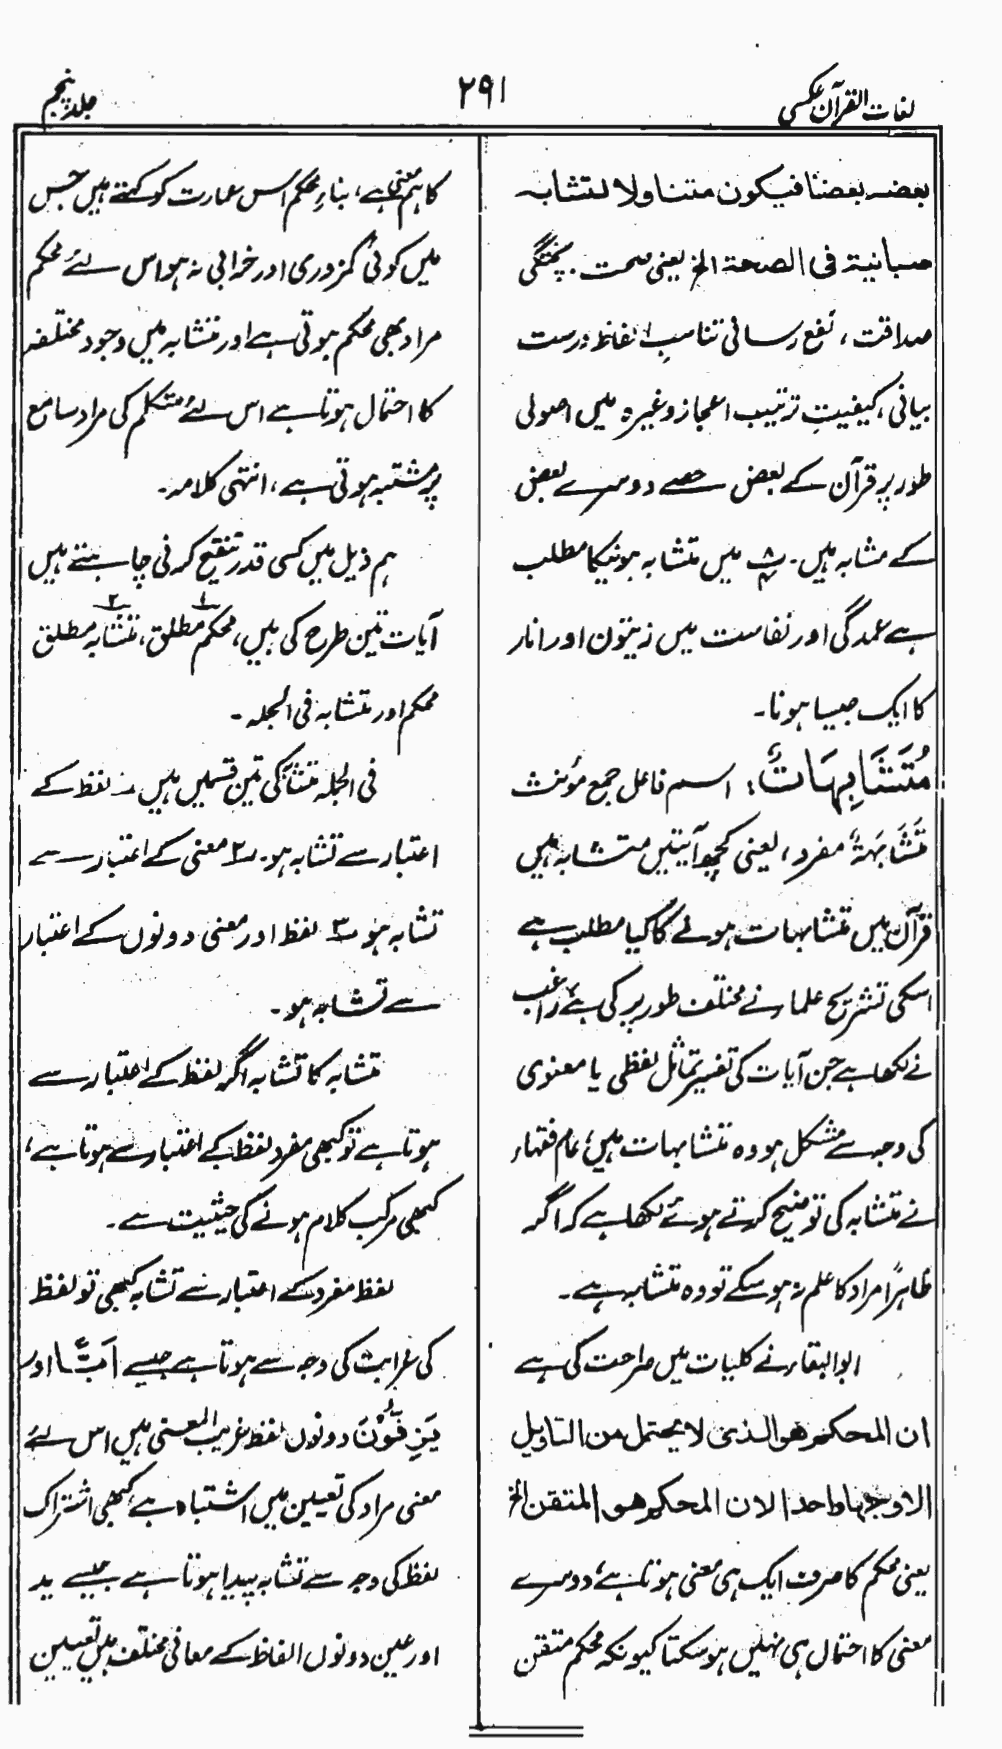 لغات القرآن عکسی
۲۹۱
جلد پنجم
بعضہ بعضنا فیکون متناولا لتشابہ
صبانیۃ فی الصحۃ الخ یعنی صحت۔ پختگی
صداقت، نفع رسانی تناسبِ الفاظ درست
بیانی، کیفیتِ ترتیب اعجاز وغیرہ میں اصولی
طور پر قرآن کے بعض حصے دوسرے بعض
کے مشابہ ہیں۔ میں متشابہ ہونیکا مطلب
ہے عمدگی اور نفاست میں زیتون اور انار
کا ایک جیسا ہونا۔
مُتَشَابِهَاتٌ: اسم فاعل جمع مؤنث
مُتَشَابِهَةٌ مفرد، یعنی کچھ آیتیں متشابہ ہیں
قرآن میں متشابہات ہونے کا کیا مطلب ہے
اسکی تشریح علمار نے مختلف طور پر کی ہے، راغب
نے لکھا ہے جن آیات کی تفسیر تماثل لفظی یا معنوی
کی وجہ سے مشکل ہو وہ متشابہات ہیں، عام فقہار
نے متشابہ کی توضیح کرتے ہوئے لکھا ہے کہ اگر
ظاہراً مراد کا علم نہ ہو سکے تو وہ متشابہ ہے۔
ابوالبقار نے کلیات میں صراحت کی ہے
ان المحکم ھو الذی لا یحتمل من التاویل
الا وجہا واحدا لان المحکم ھو المتقن الخ
یعنی محکم کا صرف ایک ہی معنی ہوتا ہے، دوسرے
معنی کا احتمال ہی نہیں ہو سکتا کیونکہ محکم متقن
کا ہم معنی ہے، بناءِ محکم اس عمارت کو کہتے ہیں جس
میں کوئی کمزوری اور خرابی نہ ہو اس لئے محکم
مراد بھی محکم ہوتی ہے اور متشابہ میں وجوہ مختلفہ
کا احتمال ہوتا ہے اس لئے متکلم کی مراد سامع
پر مشتبہ ہوتی ہے، انتہی کلامہ۔
ہم ذیل میں کسی قدر تنقیح کرنی چاہتے ہیں
آیات تین طرح کی ہیں، ۱ محکم مطلق، ۲ متشابہ مطلق
محکم اور متشابہ فی الجملہ۔
فی الجملہ متشابہ کی تین قسمیں ہیں ۱ لفظ کے
اعتبار سے تشابہ ہو۔ ۲ معنی کے اعتبار سے
تشابہ ہو ۳ لفظ اور معنی دونوں کے اعتبار
سے تشابہ ہو۔
متشابہ کا تشابہ اگر لفظ کے اعتبار سے
ہوتا ہے تو کبھی مفرد لفظ کے اعتبار سے ہوتا ہے،
کبھی مرکب کلام ہونے کی حیثیت سے۔
لفظ مفرد کے اعتبار سے تشابہ کبھی تو لفظ
کی غرابت کی وجہ سے ہوتا ہے جیسے اَبًّا اور
یَزِفُّوْنَ دونوں لفظ غریب المعنی ہیں اس لئے
معنی مراد کی تعیین میں اشتباہ ہے، کبھی اشتراک
لفظ کی وجہ سے تشابہ پیدا ہوتا ہے جیسے ید
اور عین دونوں الفاظ کے معانی مختلف ہیں تعیین